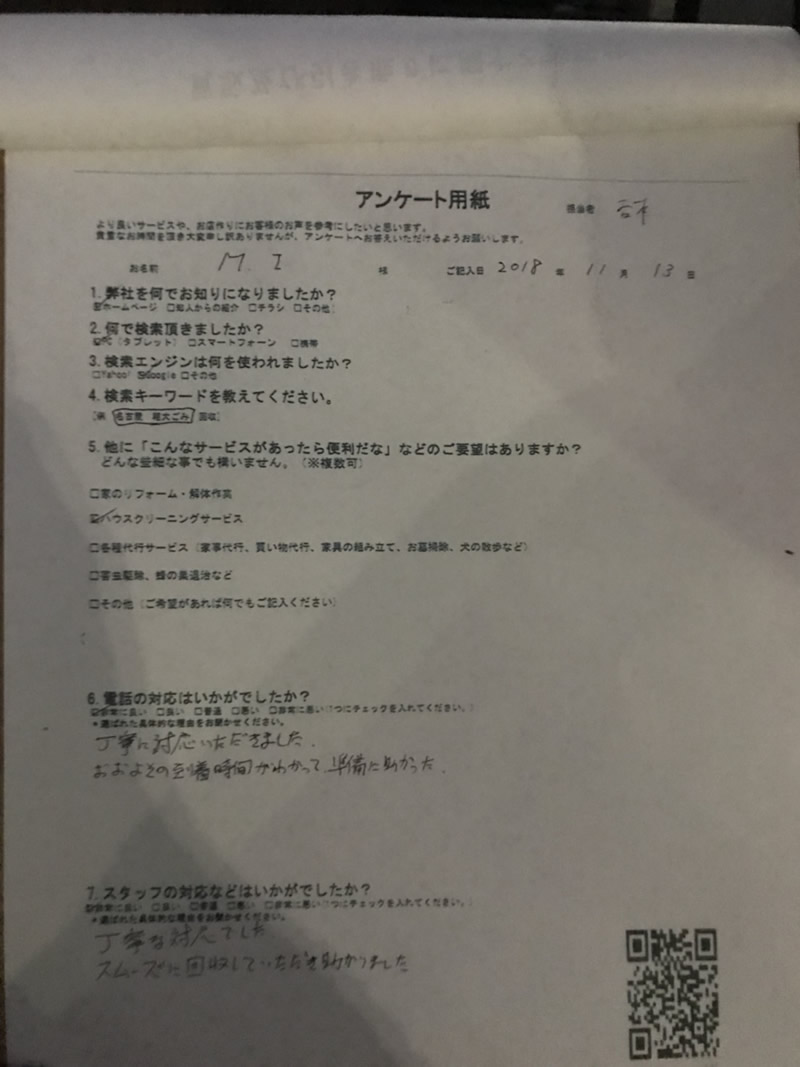 アンケート用紙
担当者
より良いサービスや、お店作りにお客様のお声を参考にしたいと思います。
貴重なお時間を頂き大変申し訳ありませんが、アンケートへお答えいただけるようお願いします。
お名前 M. I 様 ご記入日 2018 年 11 月 13 日
1. 弊社を何でお知りになりましたか?
☑ホームページ □知人からの紹介 □チラシ □その他(
2. 何で検索頂きましたか?
☑PC(タブレット) □スマートフォーン □携帯
3. 検索エンジンは何を使われましたか?
□Yahoo! ☑Google □その他
4. 検索キーワードを教えてください。
(例 名古屋 粗大ごみ 回収)
5. 他に「こんなサービスがあったら便利だな」などのご要望はありますか?
どんな些細な事でも構いません。(※複数可)
□家のリフォーム・解体作業
☑ハウスクリーニングサービス
□各種代行サービス(家事代行、買い物代行、家具の組み立て、お墓掃除、犬の散歩など)
□害虫駆除、蜂の巣退治など
□その他(ご希望があれば何でもご記入ください)
6. 電話の対応はいかがでしたか?
☑非常に良い □良い □普通 □悪い □非常に悪い(1つにチェックを入れてください。)
*選ばれた具体的な理由をお聞かせください。
丁寧に対応いただきました.
おおよその到着時間がわかって、準備に助かった.
7. スタッフの対応などはいかがでしたか?
☑非常に良い □良い □普通 □悪い □非常に悪い(1つにチェックを入れてください。)
*選ばれた具体的な理由をお聞かせください。
丁寧な対応でした
スムーズに回収していただき助かりました